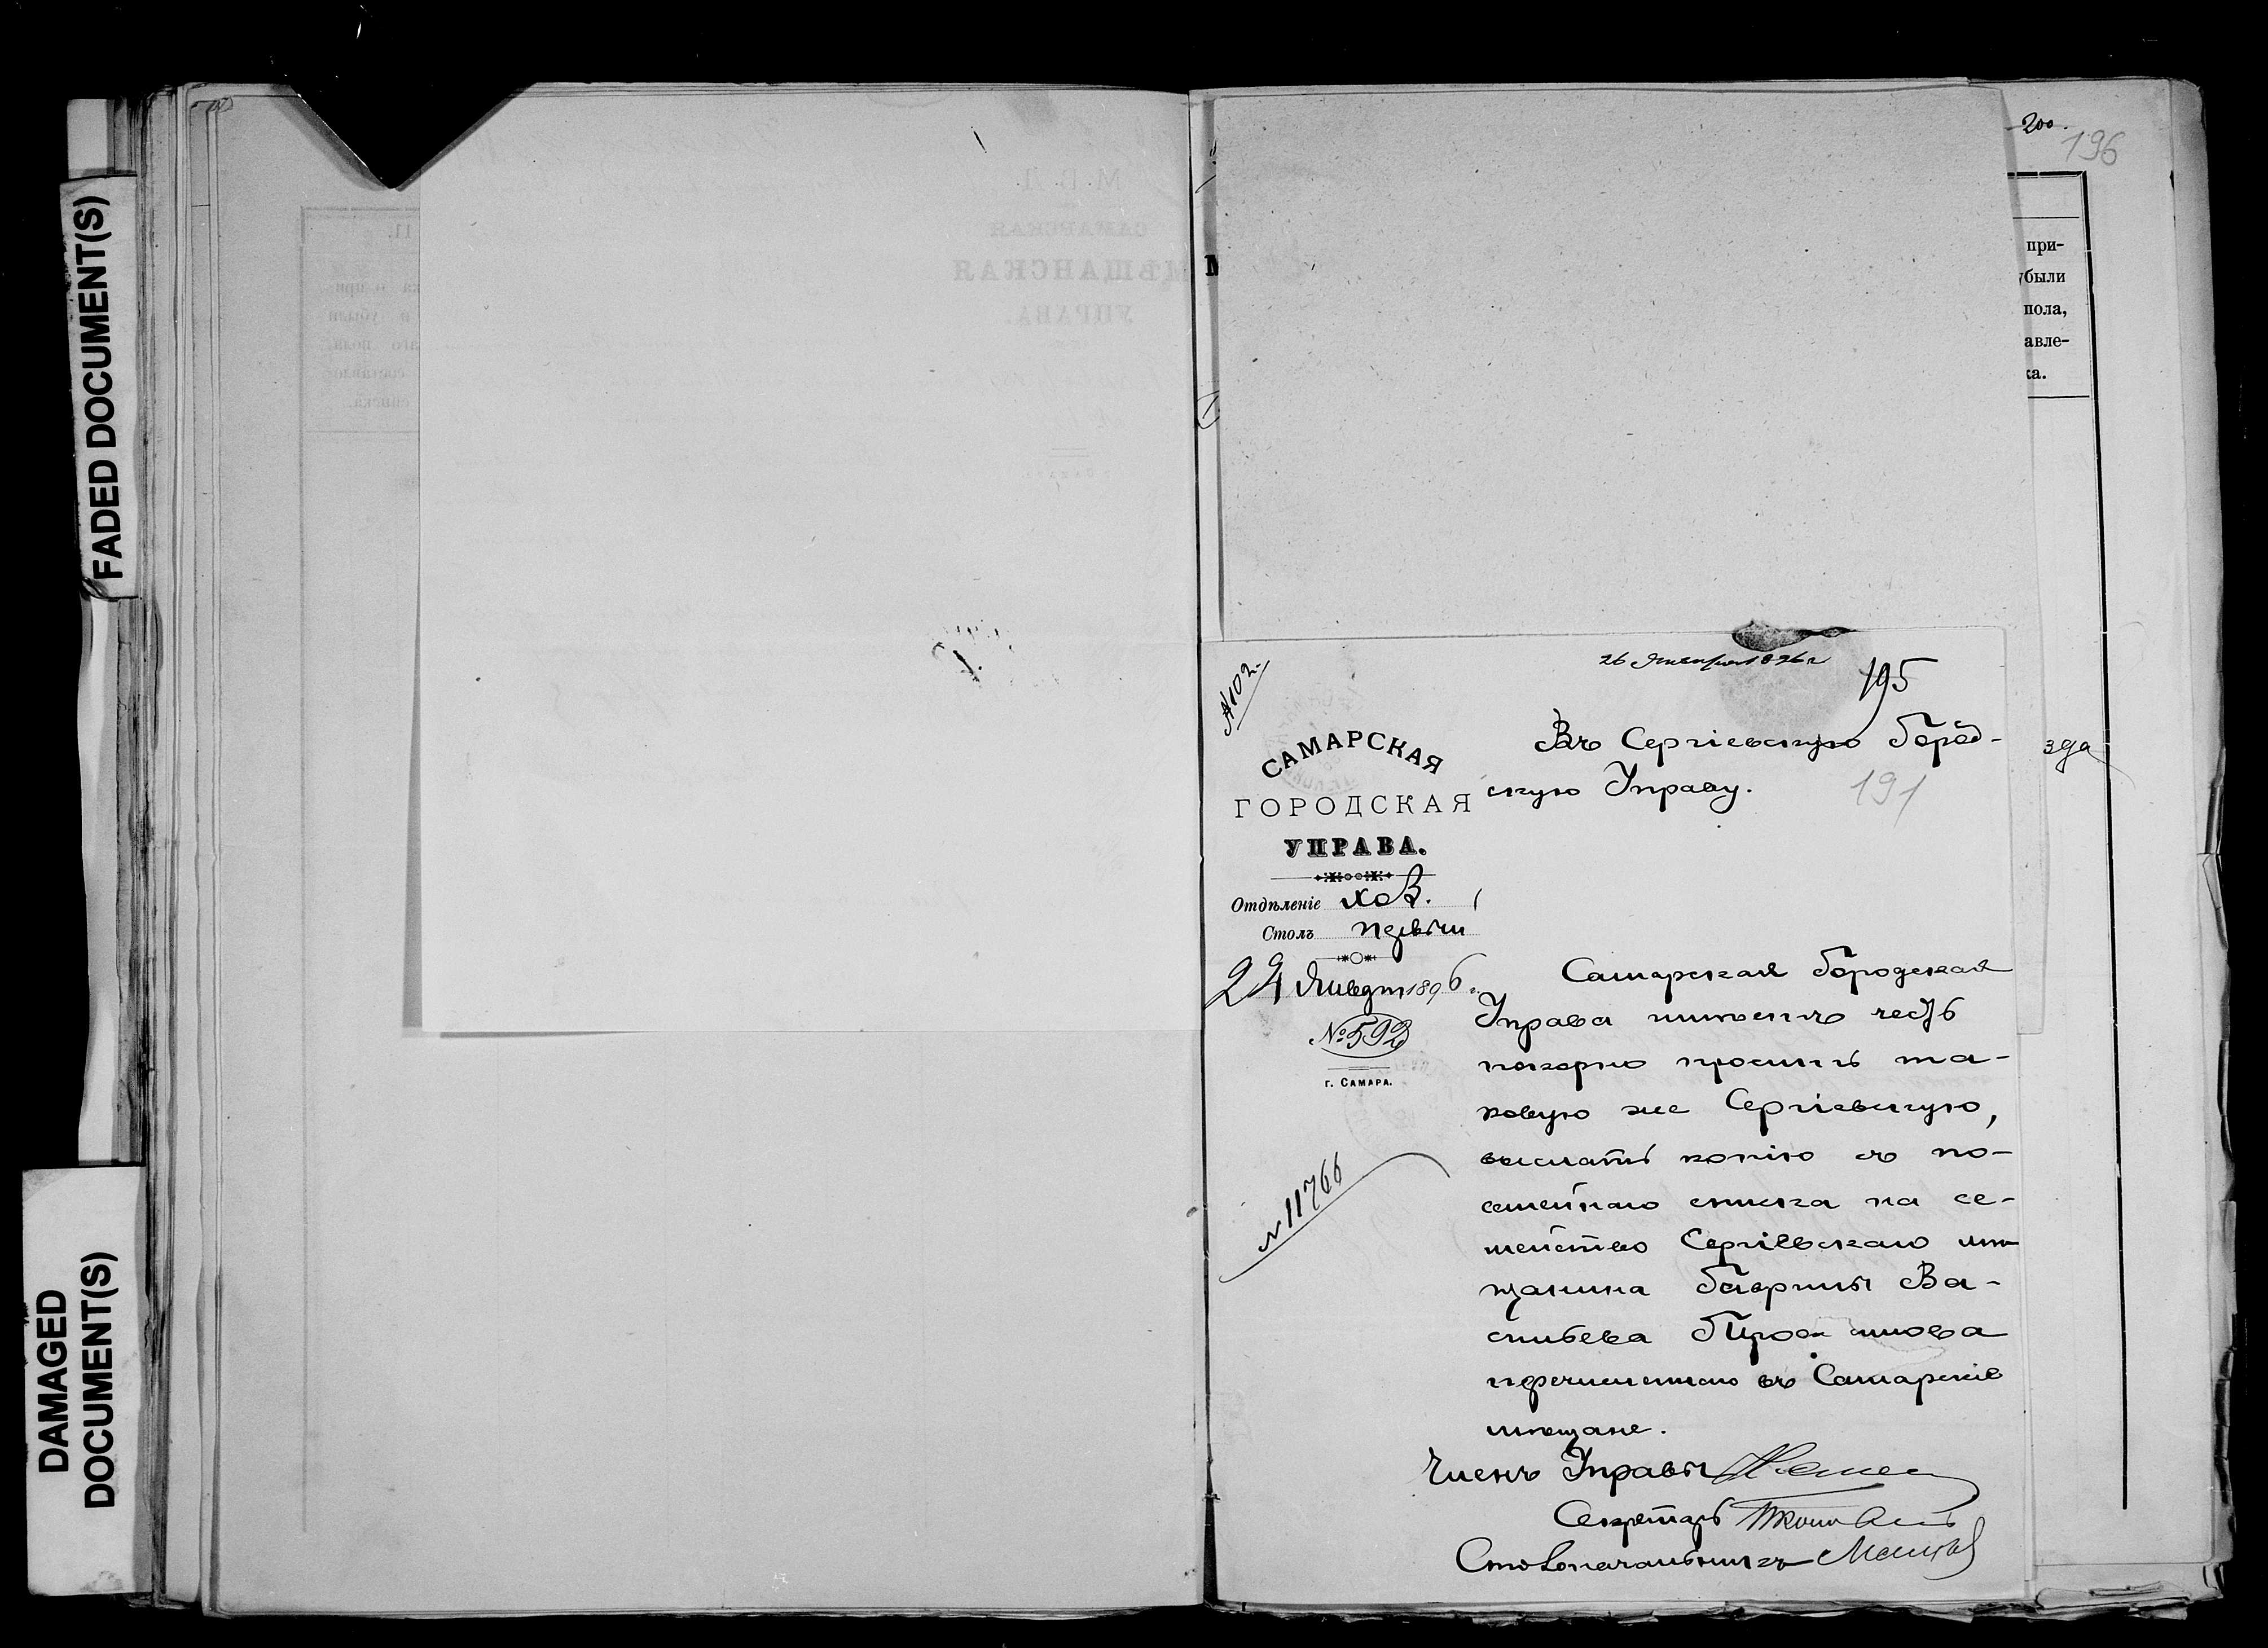 FADED DOCUMENT(S)
DAMAGED
DOCUMENT(S)
200.
196
при-
были
пола,
авле-
ка.
зда
№102
26 Января 1896 г
195
САМАРСКАЯ
ГОРОДСКАЯ
УПРАВА.
Отдѣленіе Хоз.
Столъ первый
24 Января 1896 г.
№ 592
г. САМАРА.
№ 11766
Въ Сергіевскую Город-
скую Управу.
191
Самарская Городская
Управа имѣетъ честь
покорно просить та-
ковую же Сергіевскую,
выслать копію съ по-
семейнаго списка на се-
мейство Сергіевскаго мѣ-
щанина Гаврилы Ва-
сильева
перечисленнаго въ Самарскіе
мѣщане.
Членъ Управы
Секретарь
Столоначальникъ